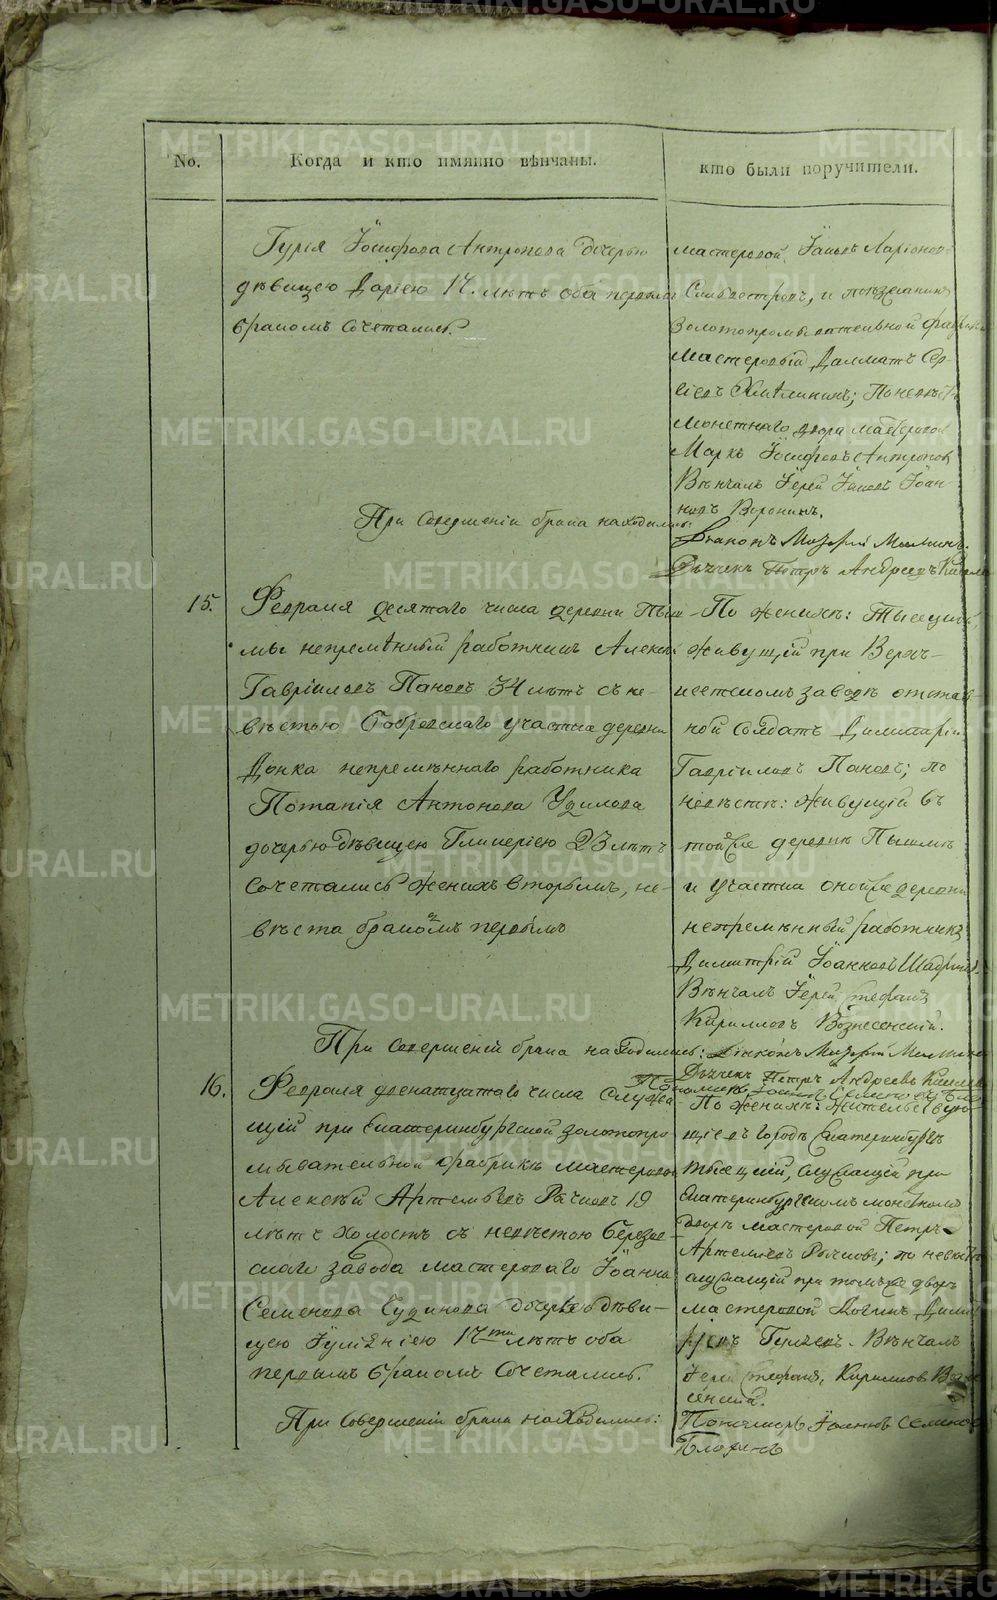 No.
Когда и кто имянно вѣнчаны.
кто были поручители.
Гурія Іосифова Антропова дочерью
дѣвицею Даріею 17. лѣтъ оба первымъ
бракомъ сочетались.
мастеровой Іаковъ Ларіоновъ
Сильвестровъ, и поѣзжанинъ
Золотопромывательной фабрики
Мастеровый Далматъ Сер-
гіевъ; По невѣстѣ
монетнаго двора мастеровой
Маркъ Іосифовъ Антроповъ
Вѣнчалъ Іерей Іаковъ Іоан-
новъ Воронинъ.
При совершеніи брака находились:
Діаконъ
Дьячекъ Петръ Андреевъ
15.
Февраля десятаго числа деревни Пыш-
мы непремѣнный работникъ Алексѣй
Гавріиловъ Пановъ 34 лѣтъ съ не-
вѣстою Бобровскаго участка деревни
непремѣннаго работника
Потапія Антонова Удилова
дочерью дѣвицею Гликеріею 23 лѣтъ
сочетались женихъ вторымъ, не-
вѣста бракомъ первымъ
По женихѣ:
живущій при Верхъ-
исетскомъ заводѣ отстав-
ной солдатъ Димитрій
Гавріиловъ Пановъ; по
невѣстѣ: живущій въ
той же деревнѣ Пышмѣ
и участка оной же деревни
непремѣнный работникъ
Димитрій Іоанновъ
Вѣнчалъ Іерей Стефанъ
Кирилловъ Вознесенскій.
При совершеніи брака находились:
Діаконъ
Дьячекъ Петръ Андреевъ
16.
Февраля двенатцатаго числа служа-
щій при Екатеринбургской золотопро-
мывательной фабрикѣ мастеровой
Алексѣй Артемьевъ Рычковъ 19
лѣтъ холостъ съ невѣстою Березов-
скаго завода мастероваго Іоанна
Семенова Чудинова дочерью дѣви-
цею Іуліаніею 17ти лѣтъ оба
первымъ бракомъ сочетались.
По женихѣ: жительствую-
щіе въ городѣ Екатеринбургѣ
служащій при
Екатеринбургскомъ монетномъ
дворѣ мастеровой Петръ
Артемьевъ Рычковъ; по невѣстѣ
служащій при томъ же дворѣ
мастеровой Логинъ
Вѣнчалъ
Іерей Стефанъ Кирилловъ Возне-
сенскій.
При совершеніи брака находились:
Пономарь Іоаннъ Семеновъ
METRIKI.GASO-URAL.RU